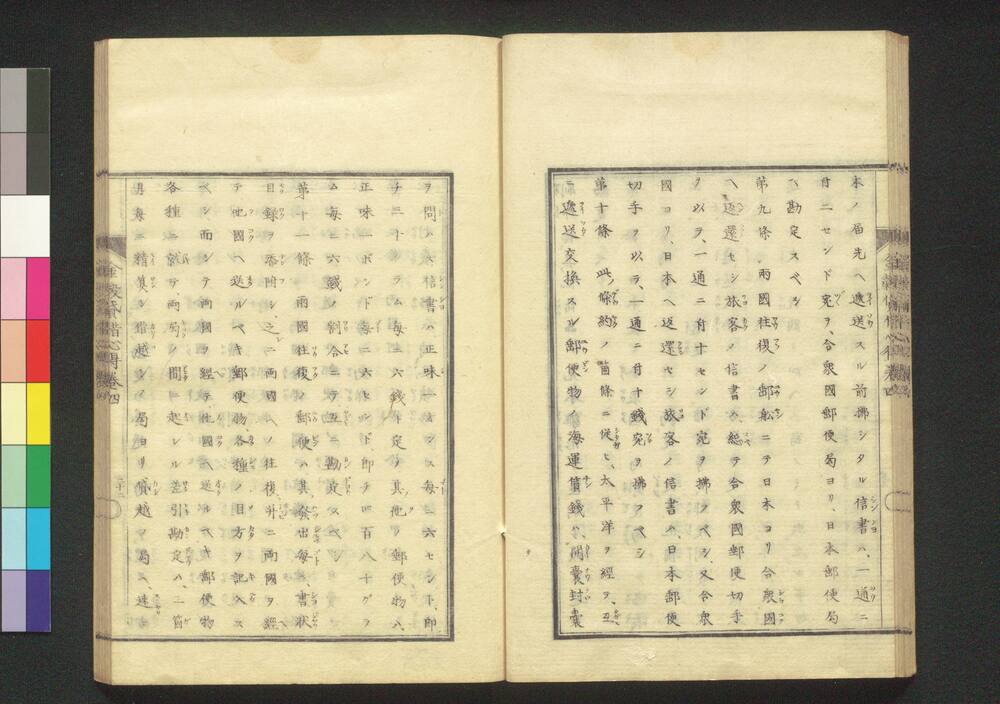 本ノ届先ヘ遞送スル前拂シタル信書ハ、一通ニ
付二センド宛ヲ、合衆國郵便局ヨリ、日本郵便局
ヘ勘定スベシ
第九條、兩國往復ノ郵船ニテ日本ヨリ合衆國
ヘ返還セシ旅客ノ信書ハ總テ合衆國郵便切手
ヲ以テ、一通ニ付十センド宛ヲ拂フベシ、又合衆
國ヨリ、日本ヘ返還セシ旅客ノ信書ハ、日本郵便
切手ヲ以テ、一通ニ付十錢宛ヲ拂フベシ
第十條　此ノ條約ノ箇條ニ從ヒ、太平洋ヲ經テ、互
ニ遞送交換スル郵便物ノ海運賃錢ハ、開嚢封嚢
ヲ問ハズ信書ハ正味一オンス毎ニ六セント、即
チ三十グラム毎ニ六錢ト定メ其他ノ郵便物ハ、
正味一ポンド毎ニ六セント、即チ四百八十グラ
ム毎ニ六錢ノ割合ニテ互ニ勘定スベシ
第十一條　兩國往復ノ郵便ハ其發出毎ニ書狀
目録ヲ添附シ之ニ兩國ヘノ往復并ニ兩國ヲ經
テ他國ヘ送ルベキ郵便物、各種ノ目方ヲ記入ス
ベシ而シテ兩國ヲ經テ他國ヘ送ルベキ郵便物
各種ニ就テ兩局ノ間ニ起レル差引勘定ハ、二箇
月毎ニ精算シ借越シノ局ヨリ貸越ノ局ヘ速
二十二